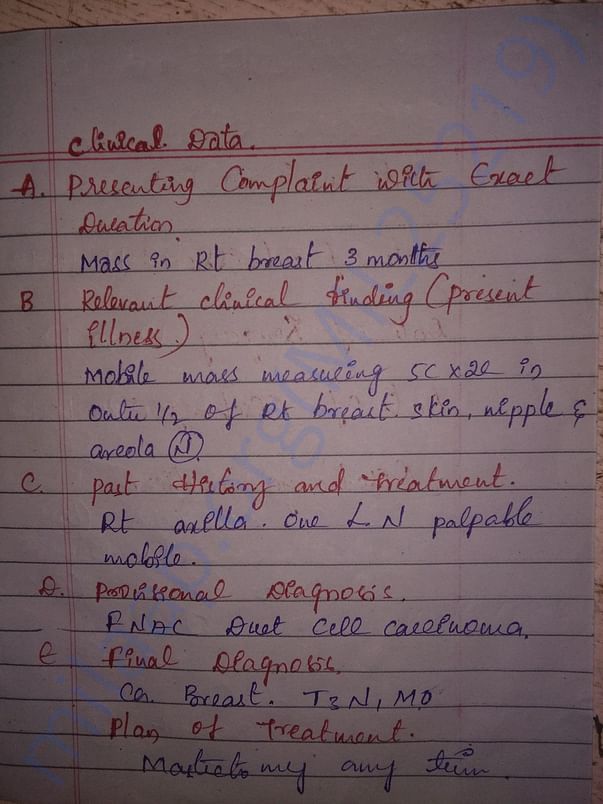 Clinical Data.
A. Presenting Complaint with Exact
Duration
Mass in Rt breast 3 months
B Relevant clinical finding (present
illness)
Mobile mass measuring 5C x 2C in
Oute 1/2 of Rt breast. skin, nipple &
areola (N)
C. past History and treatment.
Rt axella. One L N palpable
mobile.
D. Provisional Diagnosis.
FNAC Duct Cell carcinoma.
E Final Diagnosis.
Ca. Breast. T3 N1 M0
Plan of Treatment.
Mastectomy any